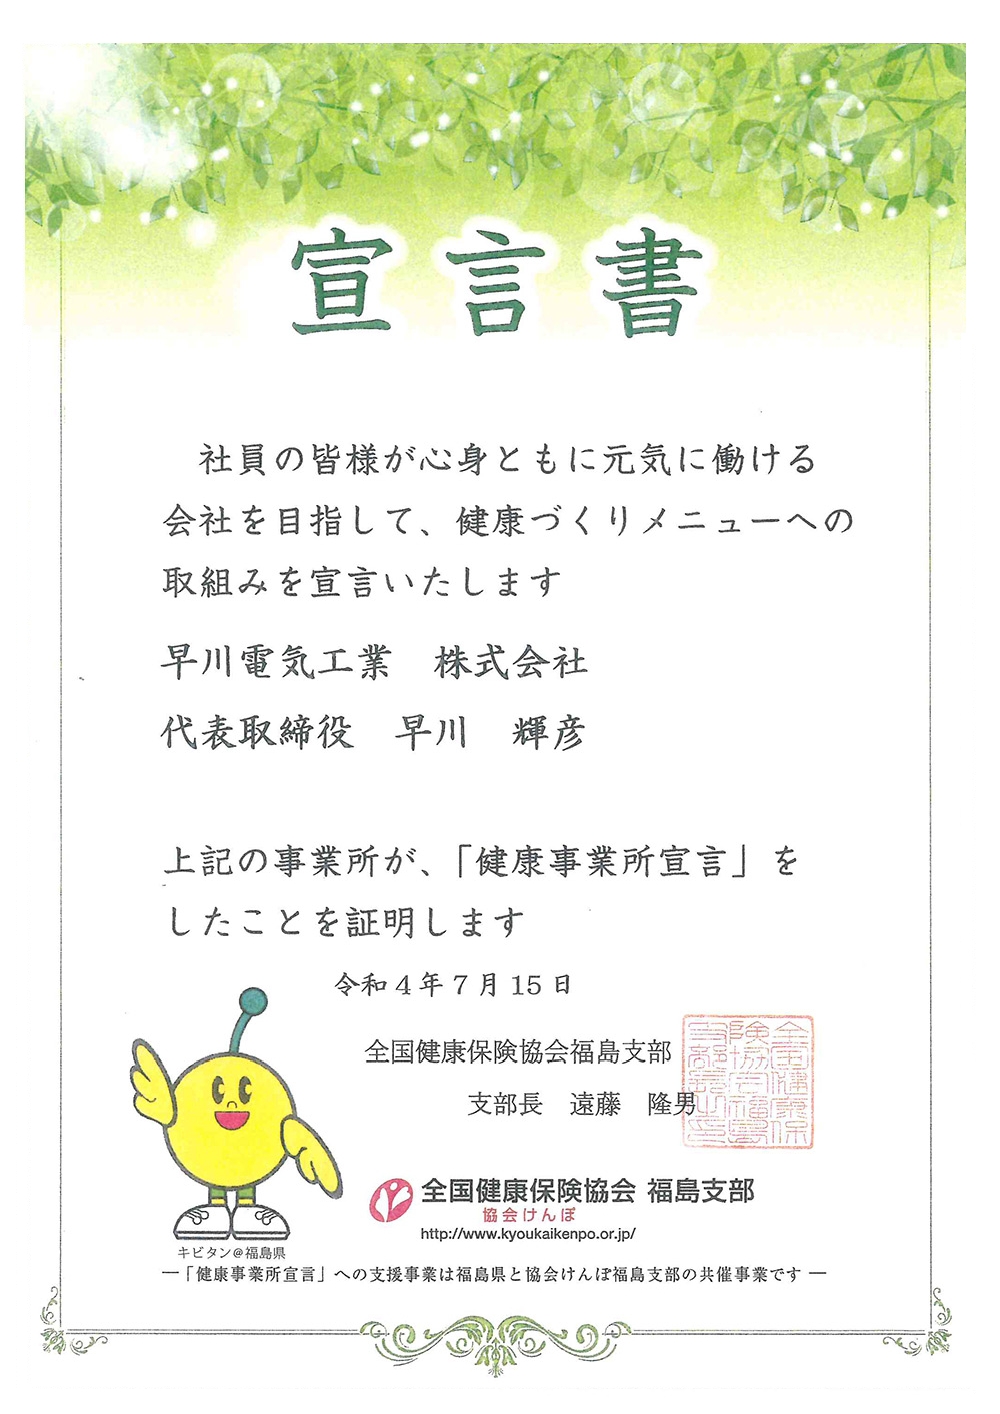 宣言書
社員の皆様が心身ともに元気に働ける
会社を目指して、健康づくりメニューへの
取組みを宣言いたします
早川電気工業　株式会社
代表取締役　早川　輝彦
上記の事業所が、「健康事業所宣言」を
したことを証明します
令和4年7月15日
全国健康保険協会福島支部
支部長　遠藤　隆男
全国健康保険協会 福島支部
協会けんぽ
http://www.kyoukaikenpo.or.jp/
キビタン@福島県
―「健康事業所宣言」への支援事業は福島県と協会けんぽ福島支部の共催事業です―